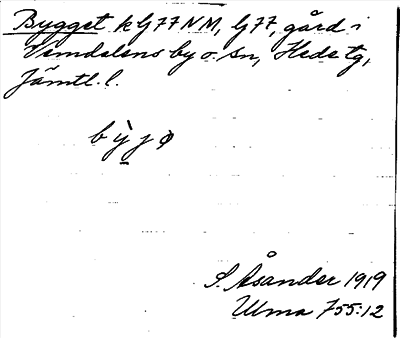 Bygget k G77 NM, G77, gård i
Vemdalens by o. sn, Hede tg,
Jämtl. l.
bỳjø
S. Åsander 1919
Ulma 755:12